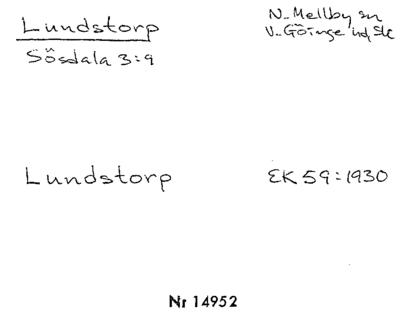 Lundstorp
N. Mellby sn
Sösdala 3:9
V. Göinge hd, Sk
Lundstorp
EK 59:1930
Nr 14952